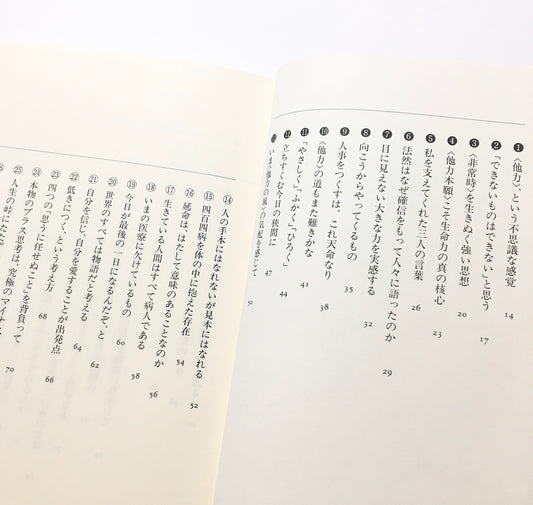 ❶〈他力〉、という不思議な感覚 14
❷「できないものはできない」と思う 17
❸〈非常時〉を生きぬく強い思想 20
❹〈他力本願〉こそ生命力の真の核心 23
❺私を支えてくれた三人の言葉 26
❻法然はなぜ確信をもって人々に語ったのか 29
❼目に見えない大きな力を実感する
❽向こうからやってくるもの 32
❾人事をつくすは、これ天命なり 35
❿〈他力〉の道もまた難きかな 38
⓫「やさしく」「ふかく」「ひろく」 41
⓬立ちすくむ今日の狭間に 44
いま〈他力の風〉の気配を感じて 47
50
⑭人の手本にはなれないが見本にはなれる 52
⑮四百四病を体の中に抱えた存在
⑯延命は、はたして意味のあることなのか 54
⑰生きている人間はすべて病人である 56
⑱いまの医療に欠けているもの 58
⑲今日が最後の一日になるんだぞ、と 60
⑳世界のすべては物語だと考える
㉑自分を信じ、自分を愛することが出発点 62
㉒低きにつく、という考え方 64
㉓四つの「思うに任せぬこと」を背負って 66
㉔本物のプラス思考は、究極のマイナス 68
㉕人生の峠にたたずん
70